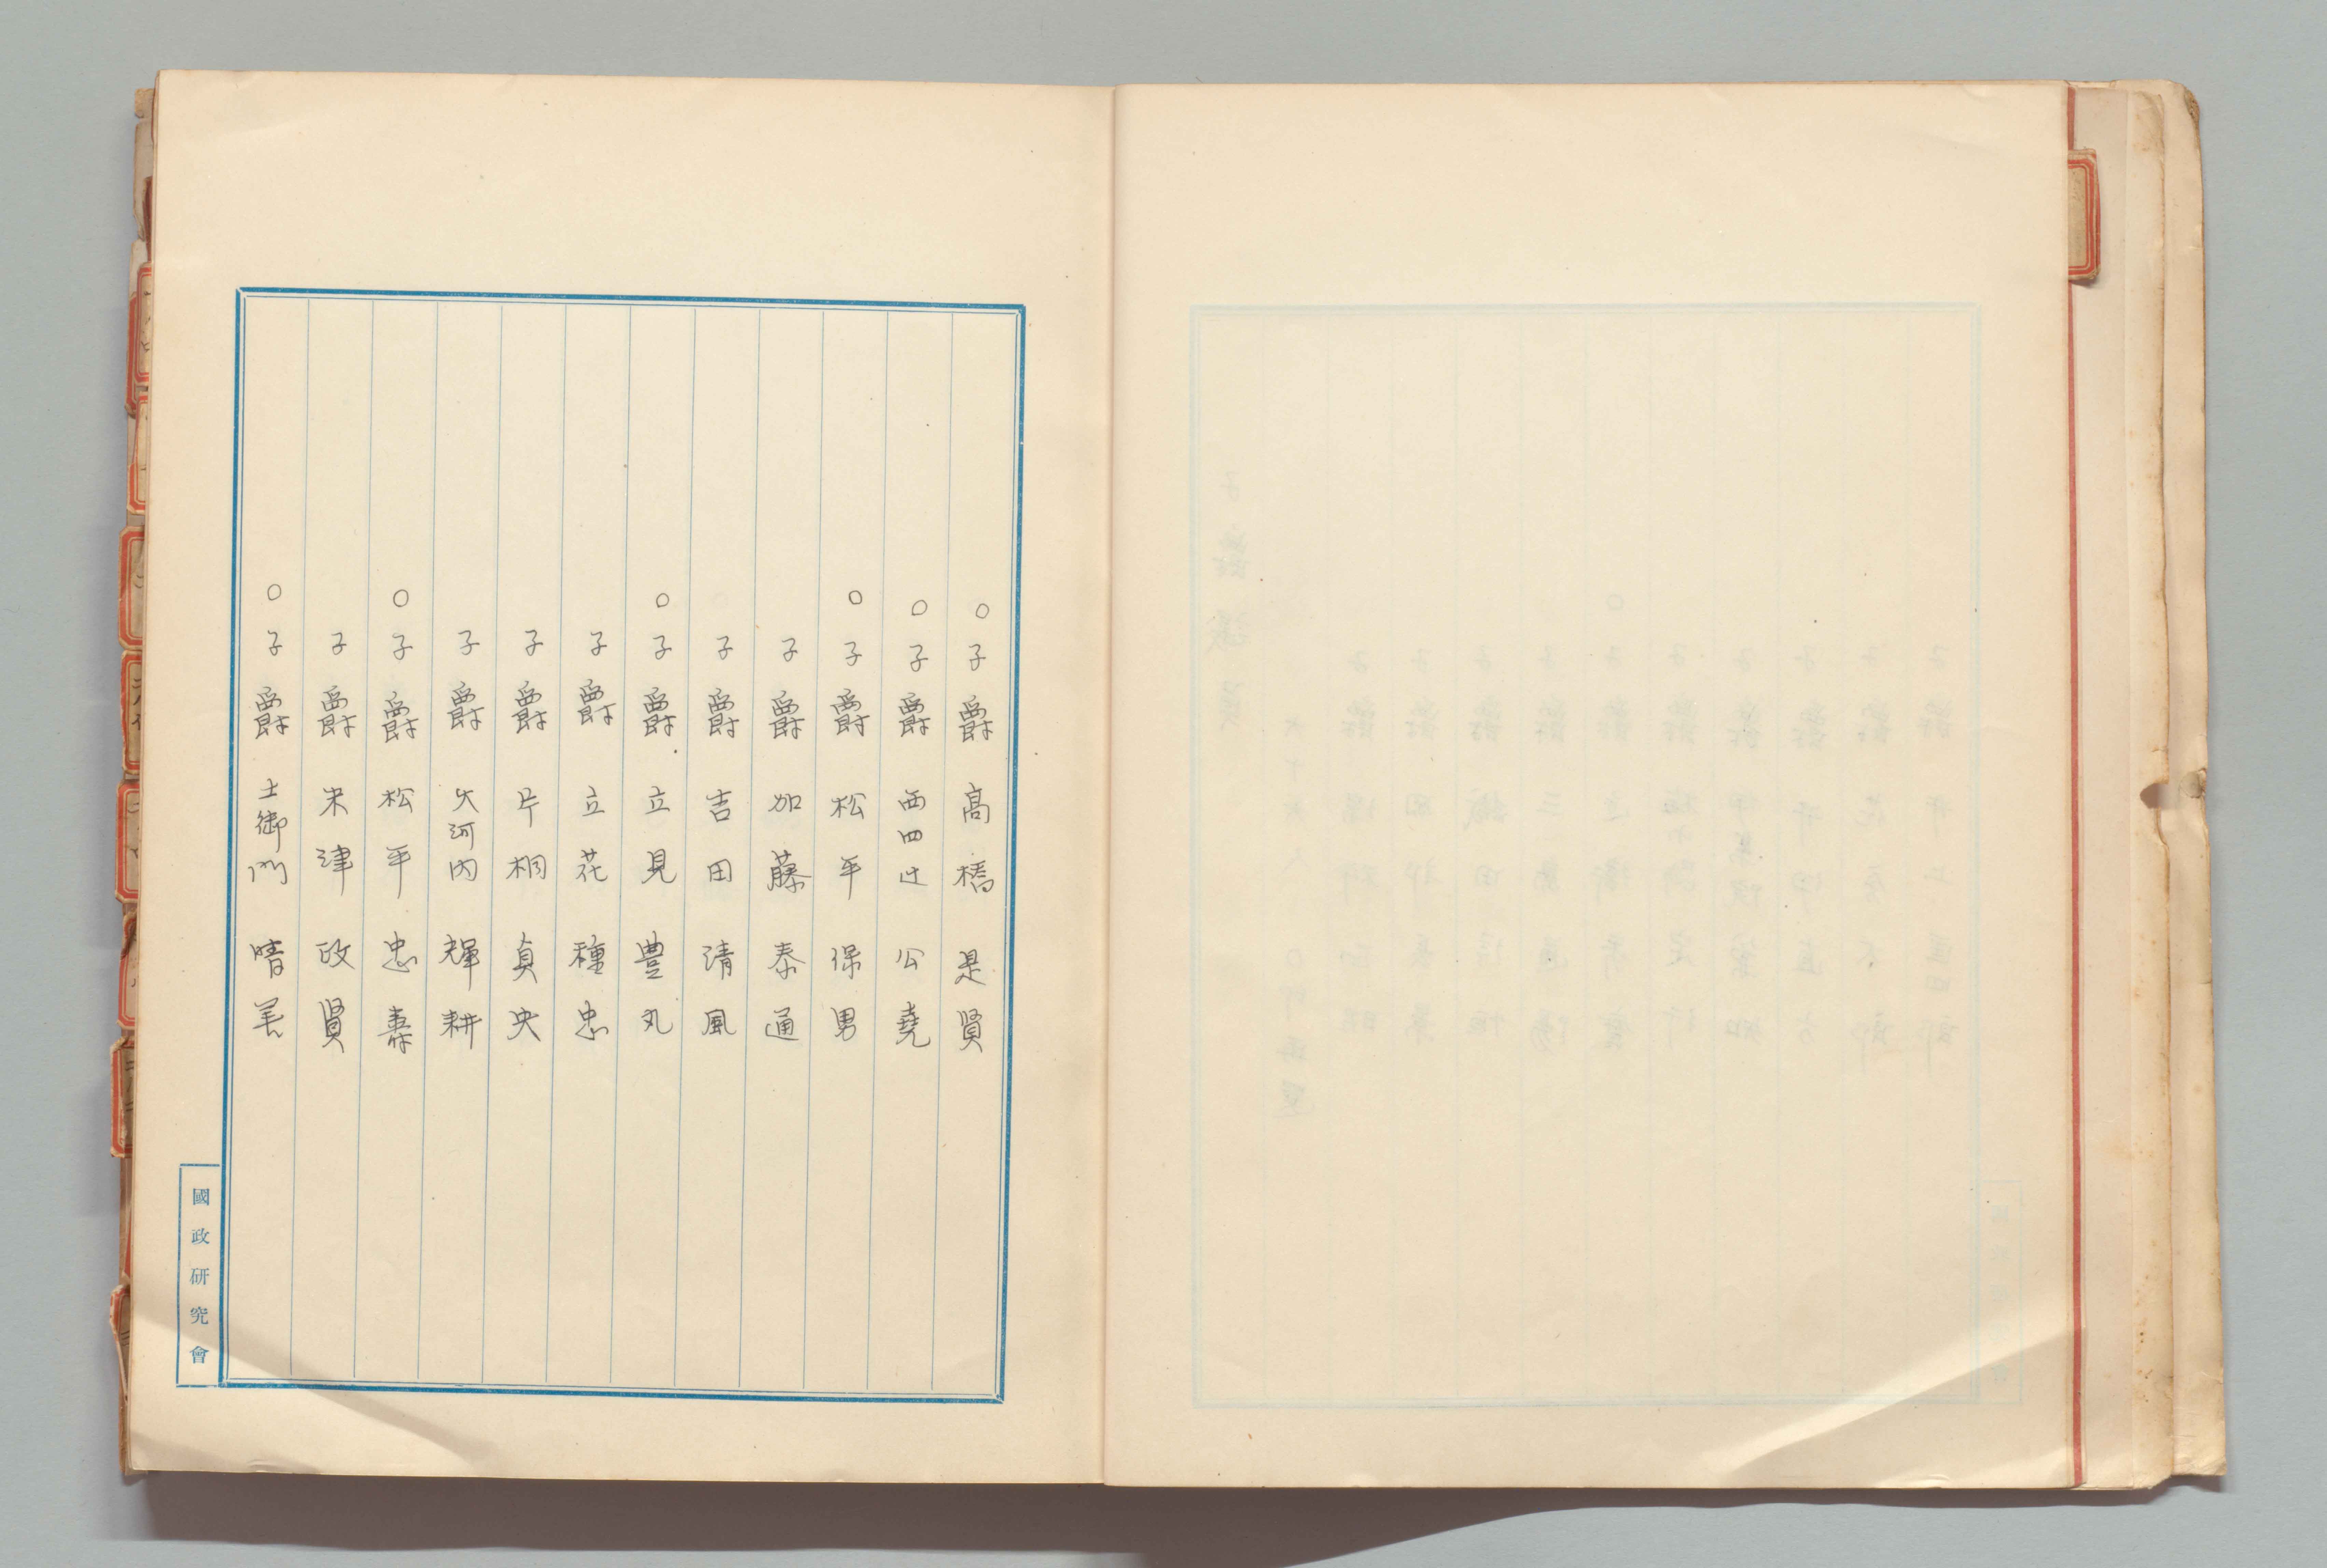 ○子爵 高橋 是賢
○子爵 西四辻 公堯
○子爵 松平 保男
子爵 加藤 泰通
子爵 吉田 清風
○子爵 立見 豊丸
子爵 立花 種忠
子爵 片桐 貞央
子爵 大河内 輝耕
○子爵 松平 忠壽
子爵 米津 政賢
○子爵 土御門 晴善
國政研究會